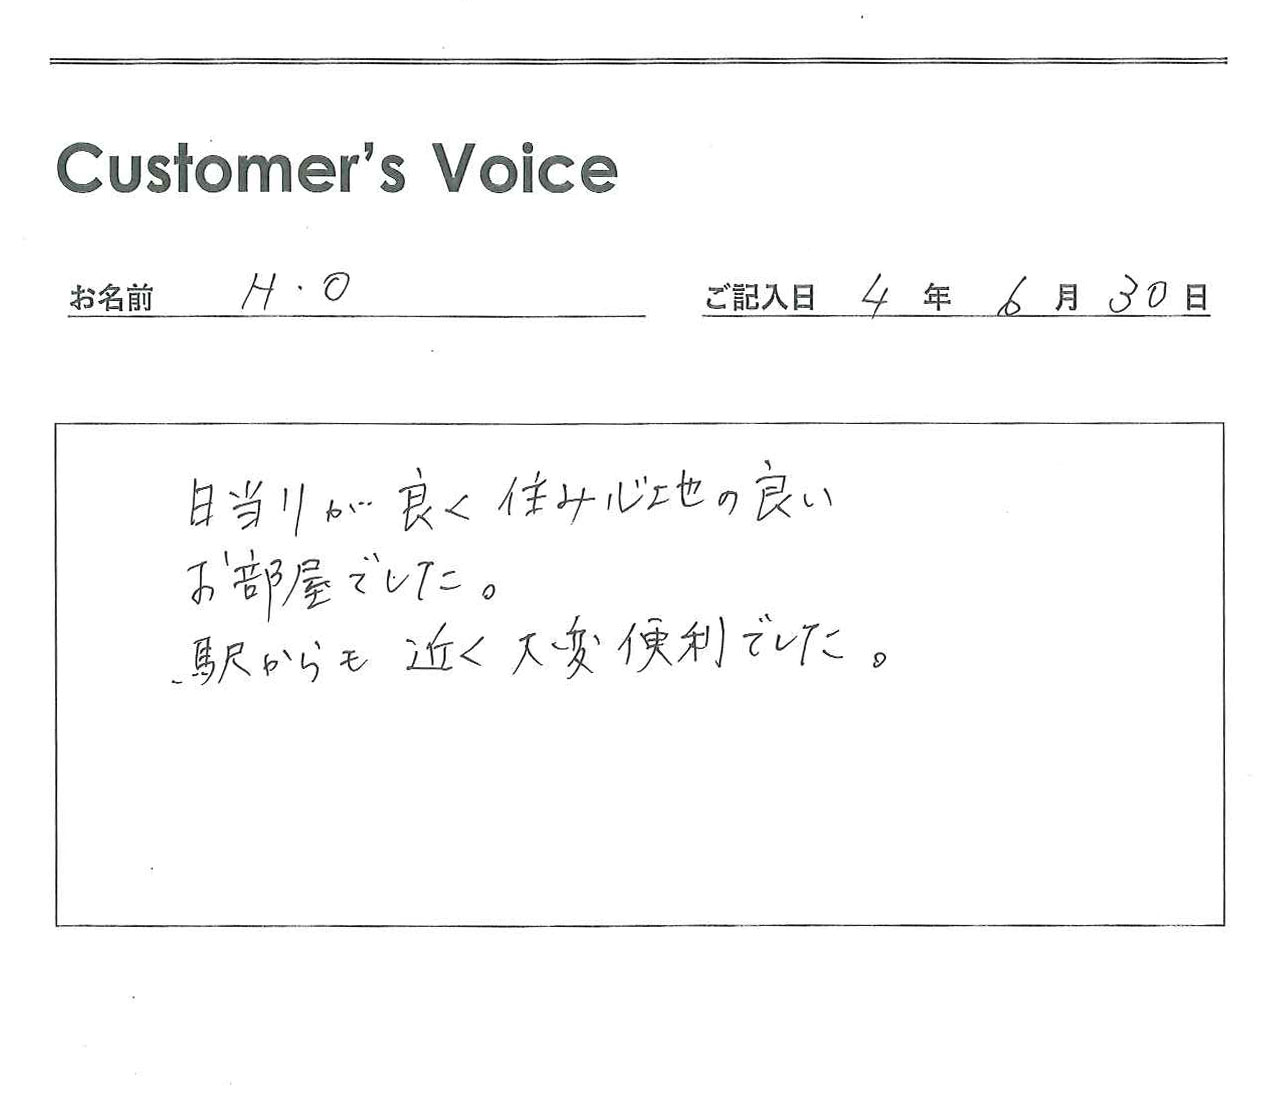 Customer's Voice
お名前 H・O ご記入日 4 年 6 月 30 日
日当りが良く住み心地の良い
お部屋でした。
駅からも近く大変便利でした。